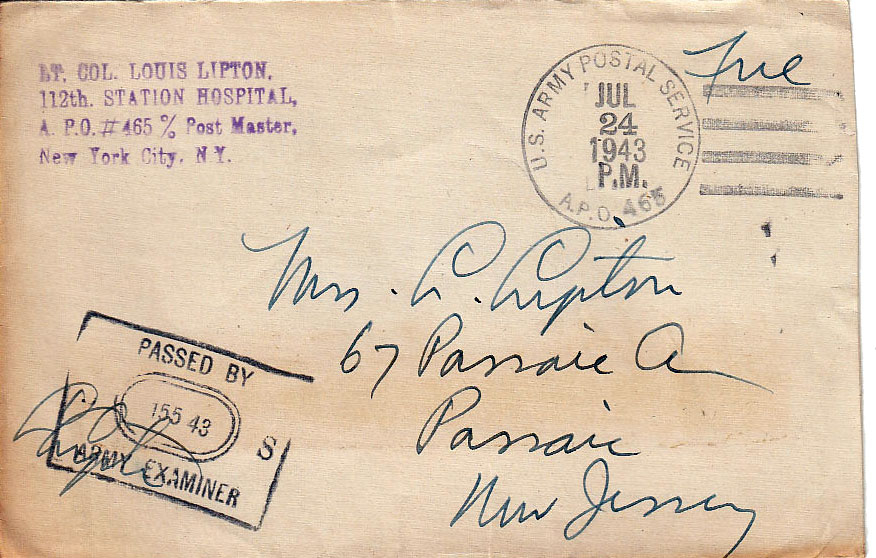 LT. COL. LOUIS LIPTON,
112th. STATION HOSPITAL,
A. P.O. #465 % Post Master,
New York City. N.Y.
U.S. ARMY POSTAL SERVICE
JUL
24
1943
P.M.
A.P.O. 465
Free
Mrs. L. Lipton
67 Passaic A
Passaic
New Jersey
PASSED BY
15543
S
ARMY EXAMINER